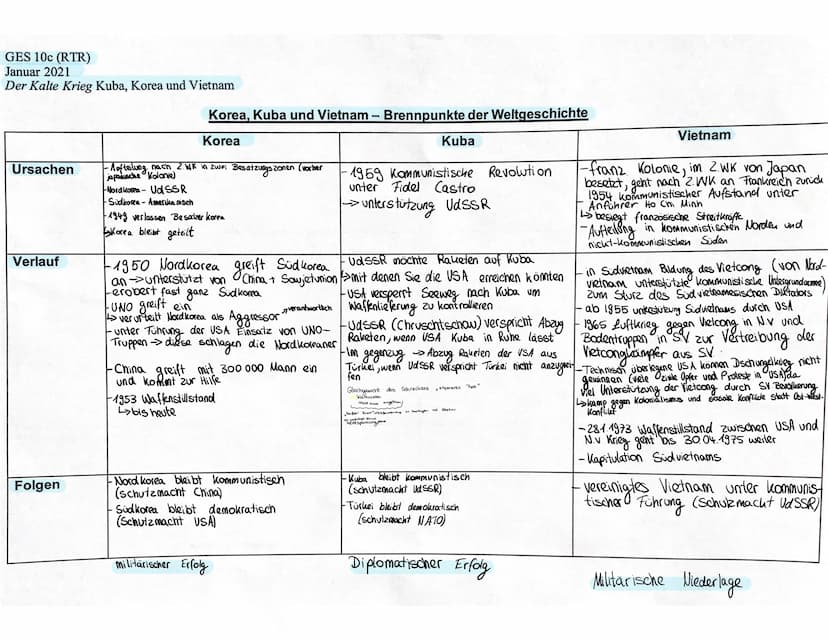 GES 10c (RTR)
Januar 2021
Der Kalte Krieg Kuba, Korea und Vietnam
Korea, Kuba und Vietnam – Brennpunkte der Weltgeschichte
Korea
Kuba
Vietnam
Ursachen
- Aufteilung nach 2 WK in zwei Besatzungszonen (vorher
japanische Kolonie)
- Nordkorea - UdSSR
- Südkorea - Amerikanisch
- 1949 verlassen Besatzer Korea
↳ Korea bleibt geteilt
- 1959 Kommunistische Revolution
unter Fidel Castro
→ unterstützung UdSSR
- franz Kolonie, im 2 WK von Japan
besetzt, geht nach 2 WK an Frankreich zurück
- 1954 kommunistischer Aufstand unter
Anführer Ho Chi Minh
↳ besiegt französische Streitkräfte
- Aufteilung in kommunistischen Norden und
nicht-kommunistischen Süden
Verlauf
- 1950 Nordkorea greift Südkorea
an → unterstützt von China + Sowjetunion
- erobert fast ganz Südkorea
- UNO greift ein
↳ verurteilt Nordkorea als Aggressor „verantwortlich
- unter Führung der USA Einsatz von UNO-
Truppen → diese schlagen die Nordkoreaner
- China greift mit 300 000 Mann ein
und kommt zur Hilfe
- 1953 Waffenstillstand
↳ bis heute
- UdSSR möchte Raketen auf Kuba
↳ mit denen Sie die USA erreichen könnten
- USA versperrt Seeweg nach Kuba um
Waffenlieferung zu kontrollieren
- UdSSR (Chruschtschow) verspricht Abzug
Raketen, wenn USA Kuba in Ruhe lässt
- Im gegenzug → Abzug Raketen der USA aus
Türkei, wenn UdSSR verspricht Türkei nicht anzugrei-
fen
Gleichgewicht des Schreckens
- in Südvietnam Bildung des Vietcong (von Nord-
vietnam unterstützte kommunistische Untergrundarmee)
zum Sturz des Südvietnamesischen Diktators
- ab 1955 unterstützung Südvietnams durch USA
- 1965 Luftkrieg gegen Vietcong in N.V und
Bodentruppen in SV zur Vertreibung der
Vietcongkämpfer aus SV
- Technisch überlegene USA können Dschungelkrieg nicht
gewinnen (viele zivile Opfer und Proteste in USA) da
viel Unterstützung der Vietcong durch SV Bevölkerung
↳ kampf gegen Kolonialismus und soziale Konflikte statt Ost-West-
Konflikt
- 28.1 1973 Waffenstillstand zwischen USA und
N.V Krieg geht bis 30.04.1975 weiter
- Kapitulation Südvietnams
Folgen
- Nordkorea bleibt kommunistisch
(schutzmacht China)
- Südkorea bleibt demokratisch
(Schutzmacht USA)
- Kuba bleibt kommunistisch
(schutzmacht UdSSR)
- Türkei bleibt demokratisch
(schutzmacht NATO)
- vereinigtes Vietnam unter kommunis-
tischer Führung (Schutzmacht UdSSR)
militärischer Erfolg
Diplomatischer Erfolg
Militärische Niederlage